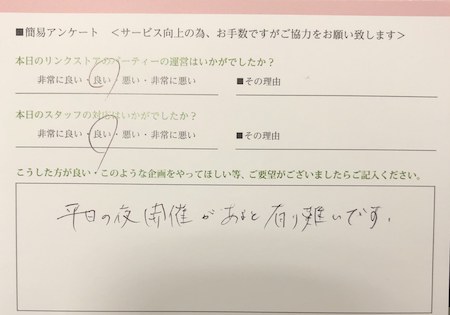 ■簡易アンケート ＜サービス向上の為、お手数ですがご協力をお願い致します＞
本日のリンクストアのパーティーの運営はいかがでしたか？
非常に良い・良い・悪い・非常に悪い ■その理由
本日のスタッフの対応はいかがでしたか？
非常に良い・良い・悪い・非常に悪い ■その理由
こうした方が良い・このような企画をやってほしい等、ご要望がございましたらご記入ください。
平日の夜開催があると有り難いです.